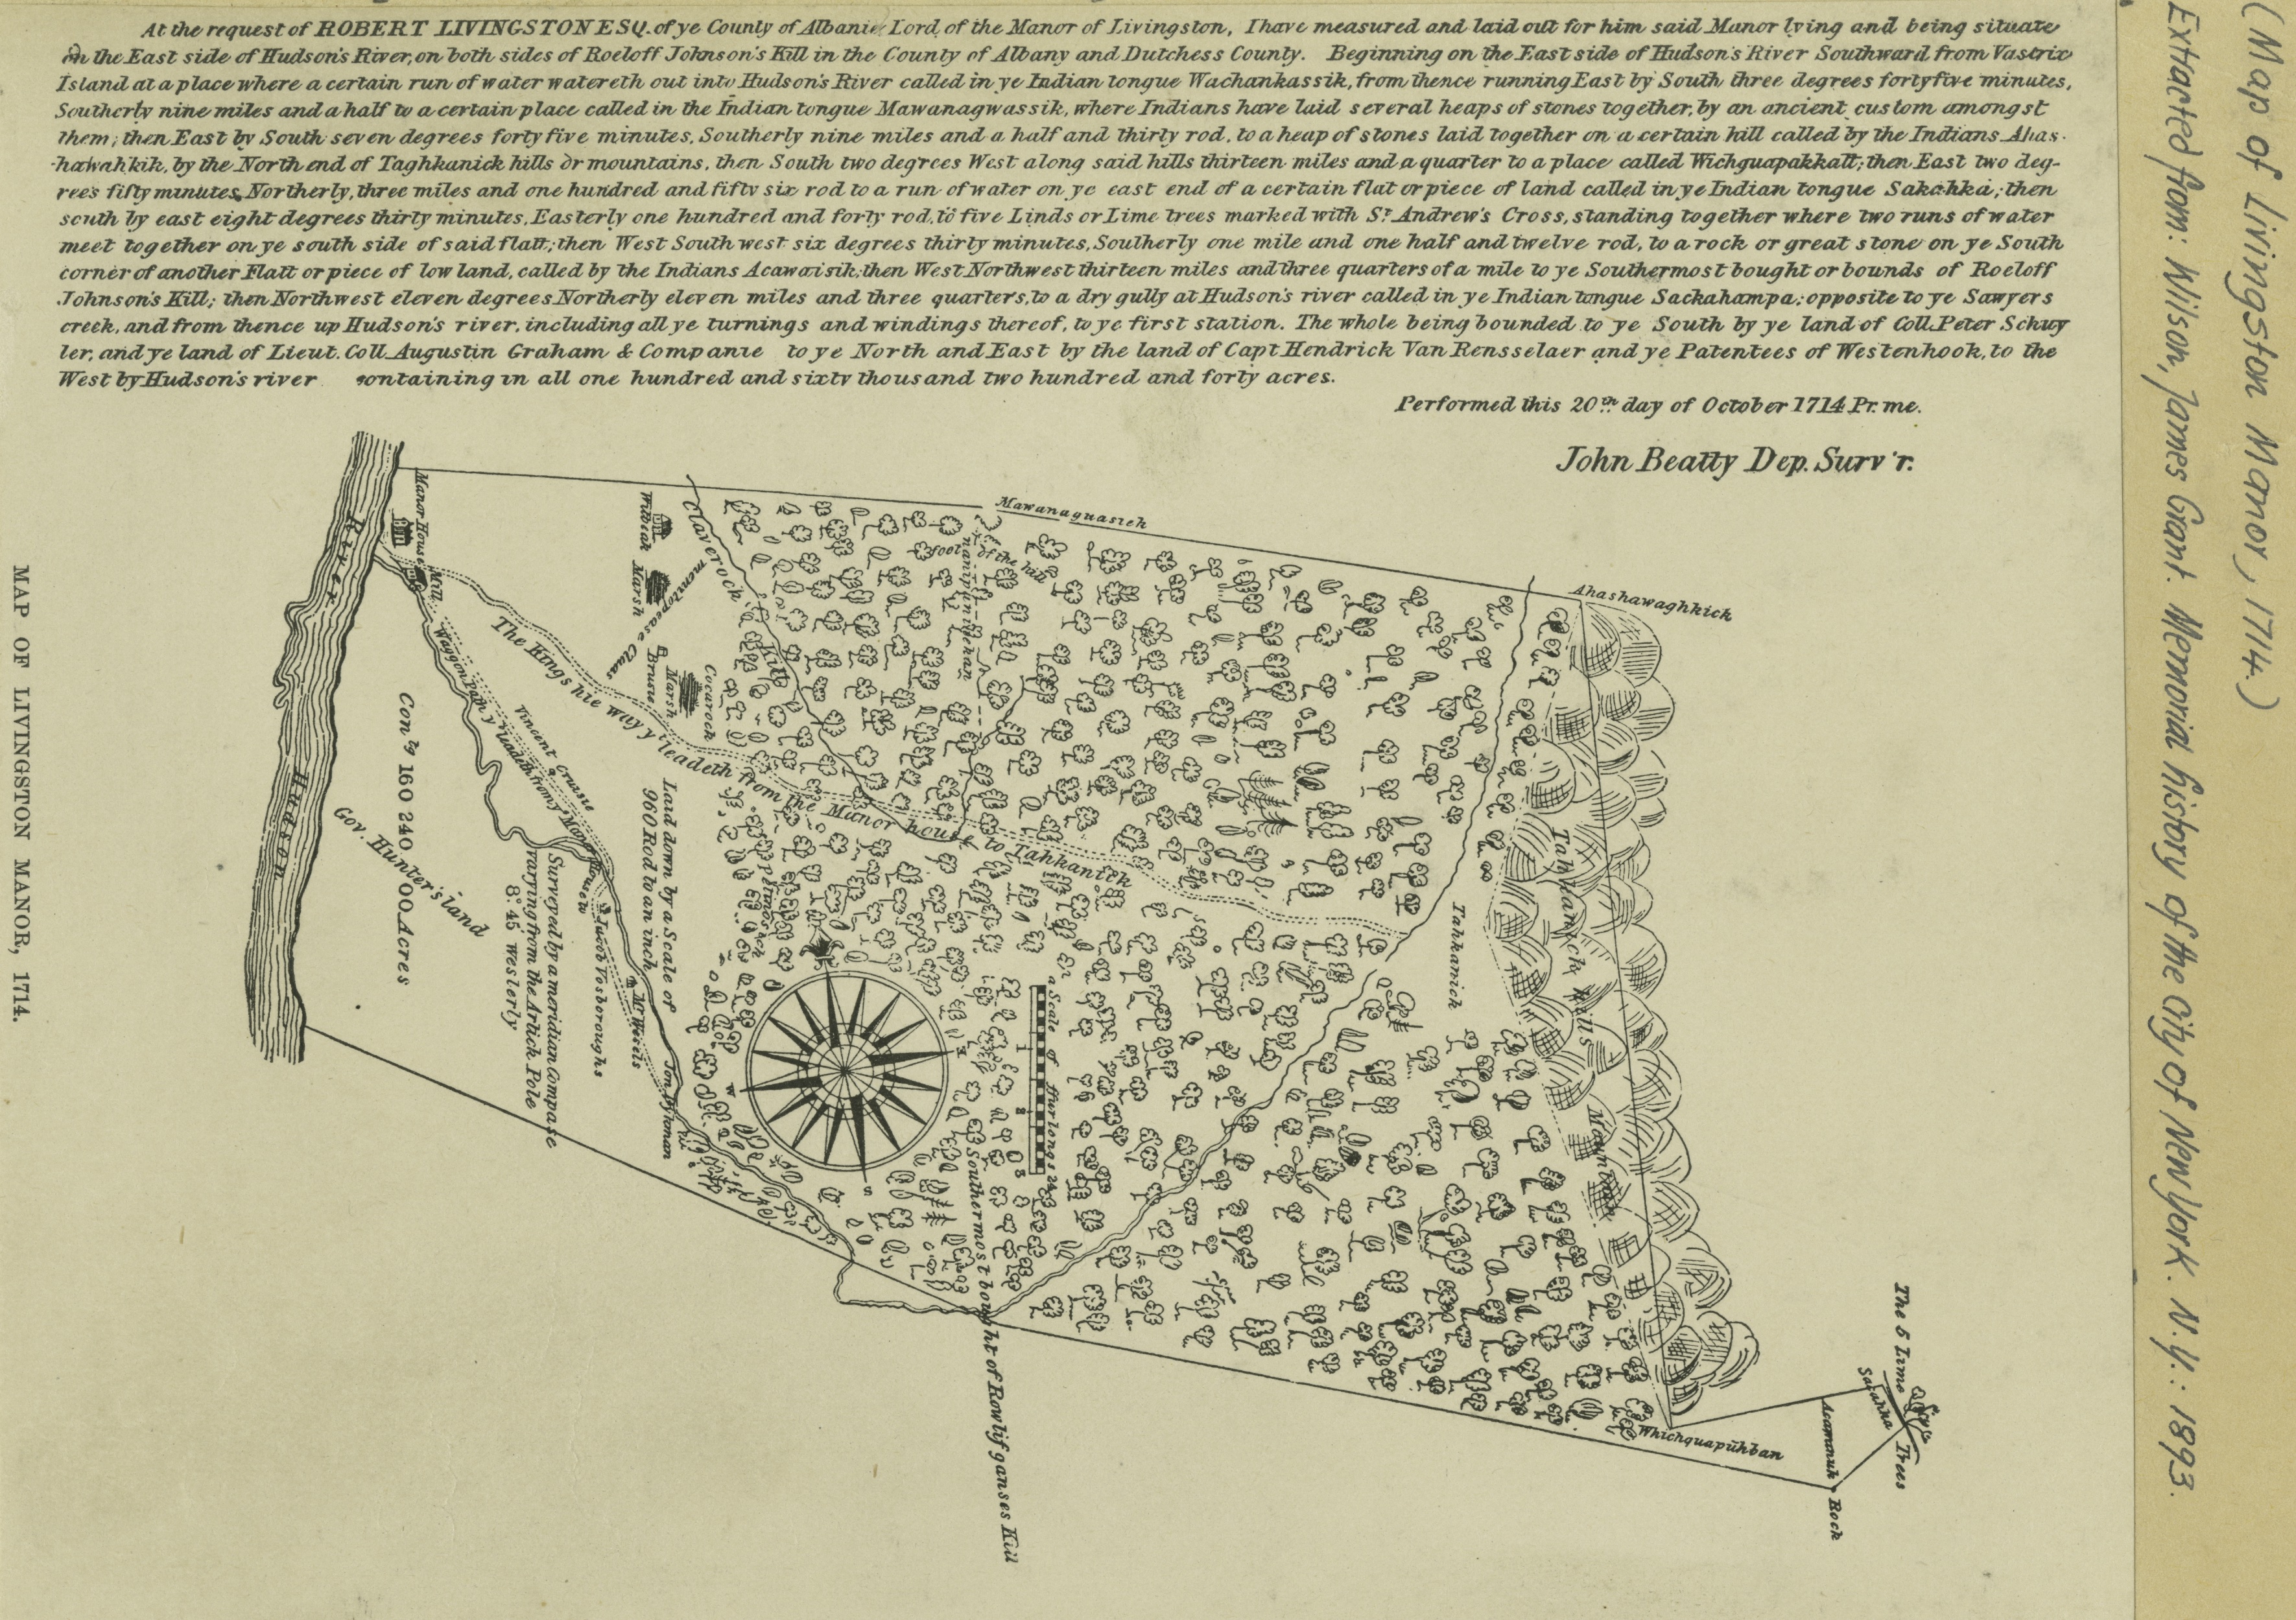 At the request of ROBERT LIVINGSTON ESQ. of ye County of Albanie Lord, of the Manor of Livingston, I have measured and laid out for him said Manor lying and being situate
on the East side of Hudson's River, on both sides of Roeloff Johnson's Kill in the County of Albany and Dutchess County. Beginning on the East side of Hudson's River Southward from Vastrix
Island at a place where a certain run of water watereth out into Hudson's River called in ye Indian tongue Wachankassik, from thence running East by South three degrees forty five minutes,
Southerly nine miles and a half to a certain place called in the Indian tongue Mawanagwassik, where Indians have laid several heaps of stones together, by an ancient custom amongst
them; then East by South seven degrees forty five minutes, Southerly nine miles and a half and thirty rod, to a heap of stones laid together on a certain hill called by the Indians Ahas-
hawahkik, by the North end of Taghkanick hills or mountains, then South two degrees West along said hills thirteen miles and a quarter to a place called Wichquapakkatt; then East two deg-
rees fifty minutes, Northerly, three miles and one hundred and fifty six rod to a run of water on ye east end of a certain flat or piece of land called in ye Indian tongue Sakahka; then
south by east eight degrees thirty minutes, Easterly one hundred and forty rod, to five Linds or Lime trees marked with St. Andrew's Cross, standing together where two runs of water
meet together on ye south side of said flatt; then West South west six degrees thirty minutes, Southerly one mile and one half and twelve rod, to a rock or great stone on ye South
corner of another Flatt or piece of low land, called by the Indians Acawaisik; then West Northwest thirteen miles and three quarters of a mile to ye Southermost bought or bounds of Roeloff
Johnson's Kill; then Northwest eleven degrees Northerly eleven miles and three quarters, to a dry gully at Hudson's river called in ye Indian tongue Sackahampa; opposite to ye Sawyers
creek, and from thence up Hudson's river, including all ye turnings and windings thereof, to ye first station. The whole being bounded to ye South by ye land of Coll. Peter Schuy
ler, and ye land of Lieut. Coll. Augustin Graham & Companie to ye North and East by the land of Capt Hendrick Van Rensselaer and ye Patentees of Westenhook, to the
West by Hudson's river containing in all one hundred and sixty thousand two hundred and forty acres.
Performed this 20th day of October 1714 Pr. me.
John Beatty Dep. Surv'r.
Mawanaguasich
Ahashawaghkick
Manor House
Mill
Witbeak
Marsh
Claverock
Kill
mentopease Clua
Bruse
Marsh
Cocarock
foot of the hill
The Kings hie way y leadeth from the Manor house to Tahkanick
Waggon Path
Vincent
Con'g 160 240 00 Acres
Gov. Hunter's land
Hudson
River
Laid down by a Scale of
960 Rod to an inch
Surveyed by a meridian Compase
varving from the Artick Pole
8° 45 westerly
Tuon Vosboroughs
a Scale of ffurlongs 24
1
2
3
S
Tahkanick
Tahkanick Hills
Southermost bought of Rowlif ganses Kill
Whichquapuhban
Sacahka
The 5 Lime Trees
Acawanuk
Rock
MAP OF LIVINGSTON MANOR, 1714.
(Map of Livingston Manor, 1714.)
Extracted from: Wilson, James Grant. Memorial history of the City of New York. N.Y.: 1893.